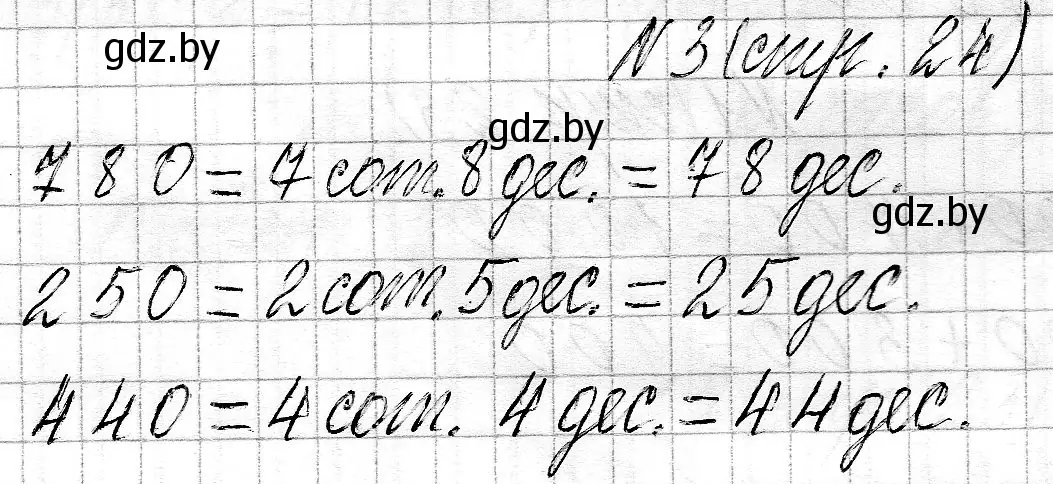 gdz.by
N 3 (стр. 24)
gdz.by
780 = 7 сот. 8 дес. = 78 дес.
gdz.by
250 = 2 сот. 5 дес. = 25 дес.
440 = 4 сот. 4 дес. = 44 дес.